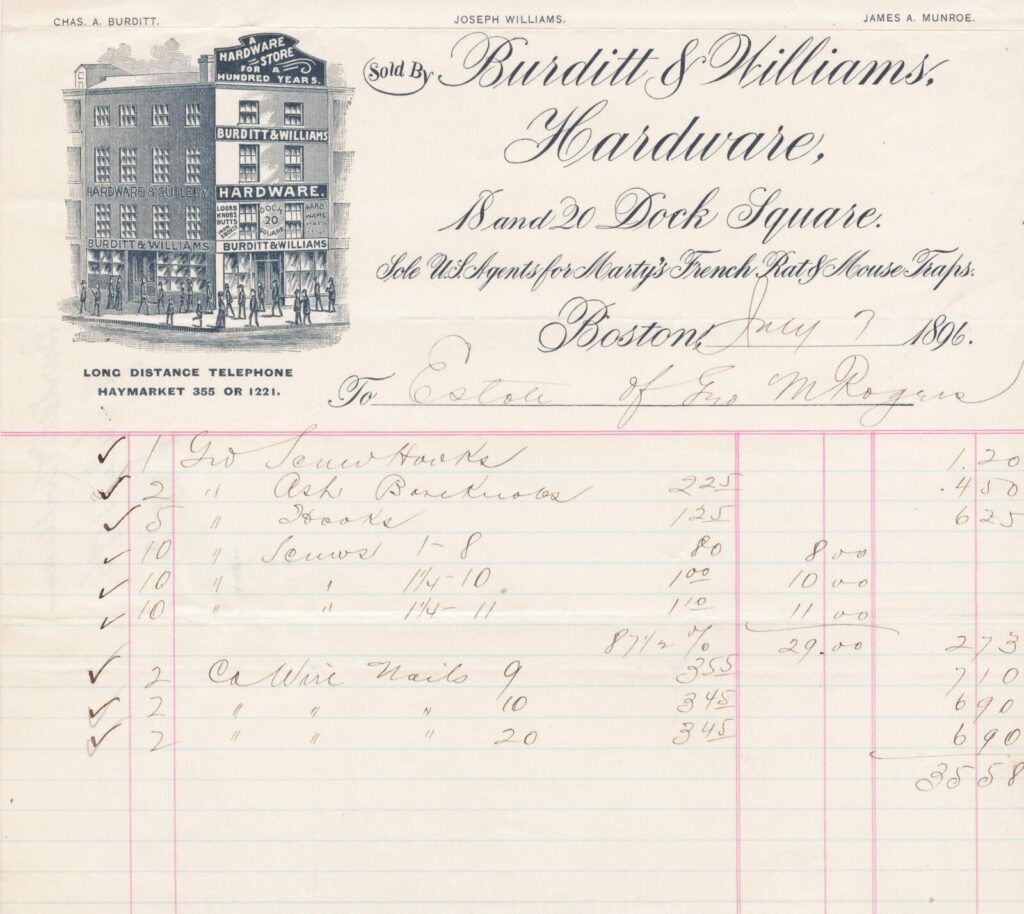 CHAS. A. BURDITT. JOSEPH WILLIAMS. JAMES A. MUNROE.
A HARDWARE STORE FOR A HUNDRED YEARS.
BURDITT & WILLIAMS
HARDWARE & CUTLERY HARDWARE.
LOCKS KNOBS BUTTS
DOCK 20 SQUARE
BURDITT & WILLIAMS BURDITT & WILLIAMS
LONG DISTANCE TELEPHONE
HAYMARKET 355 OR 1221.
Sold By Burditt & Williams,
Hardware,
18 and 20 Dock Square.
Sole U.S. Agents for Marty's French Rat & Mouse Traps.
Boston, July 7 1896.
To Estate of Geo M Rogers
✓ 1 Gro Screw Hooks 1.20
✓ 2 " Ash Base Knobs 225 450
✓ 5 " Hooks 125 625
✓ 10 " Screws 1-8 80 8 00
✓ 10 " " 1¼-10 1 00 10 00
✓ 10 " " 1¼-11 1 10 11 00
87 1/2 % 29.00 273
✓ 2 Ca Wire Nails 9 355 710
✓ 2 " " " 10 345 690
✓ 2 " " " 20 345 690
3558